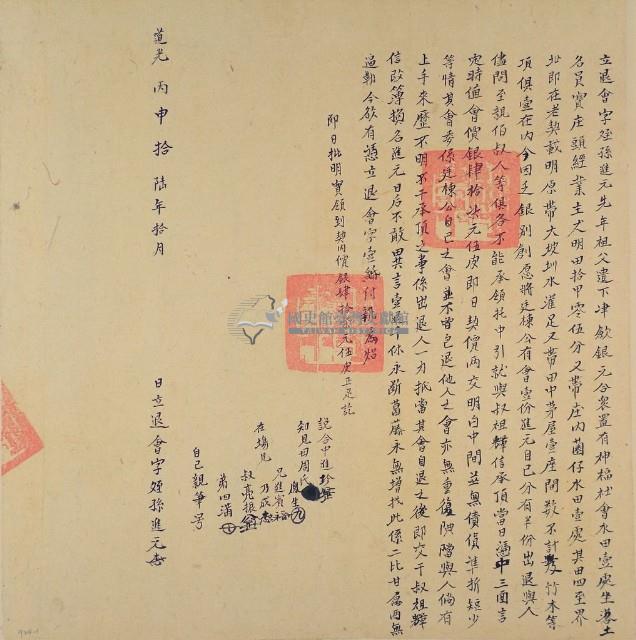 立退會字姪孫進元先年祖父遺下津飲銀元合眾置有神福社會水田壹處坐落土
名員寶庄頭經業主丈明田拾甲零伍分又帶庄內菌仔水田壹處其田四至界
址即在老契載明原帶大坡圳水灌足又帶田中茅屋壹座間數不計及竹木等
項俱壹在內今因乏銀別創愿將廷棟公有會壹份進元自己分有半份出退與人
儘問至親伯叔人等俱各不能承領托中引就與叔祖輝信承頂當日憑中三面言
定時值會價銀肆拾柒元伍皮即日契價兩交明白中間並無債貨準折短少
等情其會委係廷棟公自己之會並不曾包退他人之會亦無重復與人倘有
上手來歷不明不干承頂之事係出退人一力抵當其會自退之後即交于叔祖輝
信改簿換名進元日后不敢異言壹退永斷葛藤永無增找此係二比甘愿兩無
逼勒今欲有憑立退會字壹紙付執為炤
即日批明實領到契內價銀肆拾柒元伍皮正足訖
說合中進珍
知見田周氏
應生
兄進賓裕
在場見乃成
叔亮振
弟四滿
自己親筆
道光丙申拾陸年拾月 日立退會字姪孫進元
國史館臺灣文獻館
TAIWAN HISTORICA